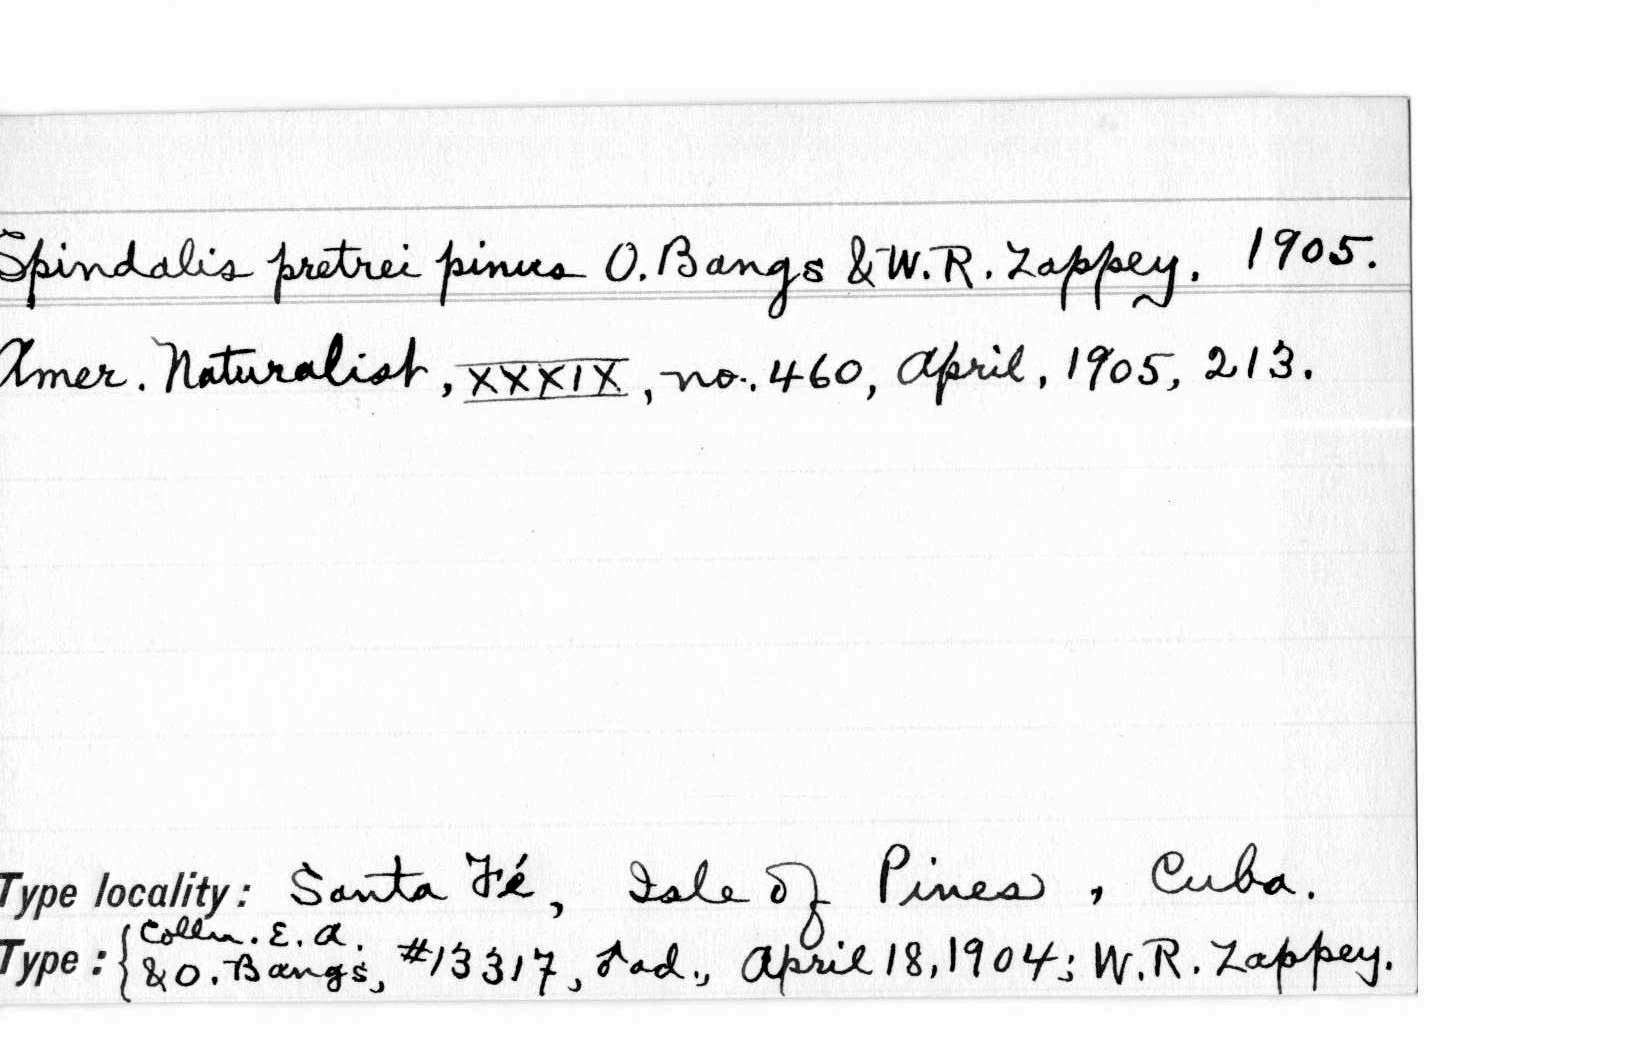 Spindalis pretrei pinus O. Bangs & W. R. Zappey. 1905.
Amer. Naturalist, XXXIX, no. 460, April, 1905, 213.
Type locality: Santa Fé, Isle of Pines, Cuba.
Type: { Colln. E. A. & O. Bangs, #13317, ♂ ad., April 18, 1904; W. R. Zappey.